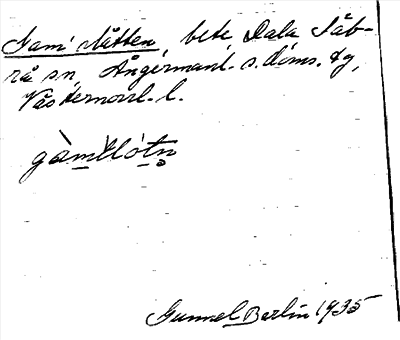 Gam slåtten, bete, Dala Säb-
rå sn, Ångermanl. s. doms. dg,
Västernorrl. l.
gàm͟l̀ót͟n̥
Gunnel Berlin 1935